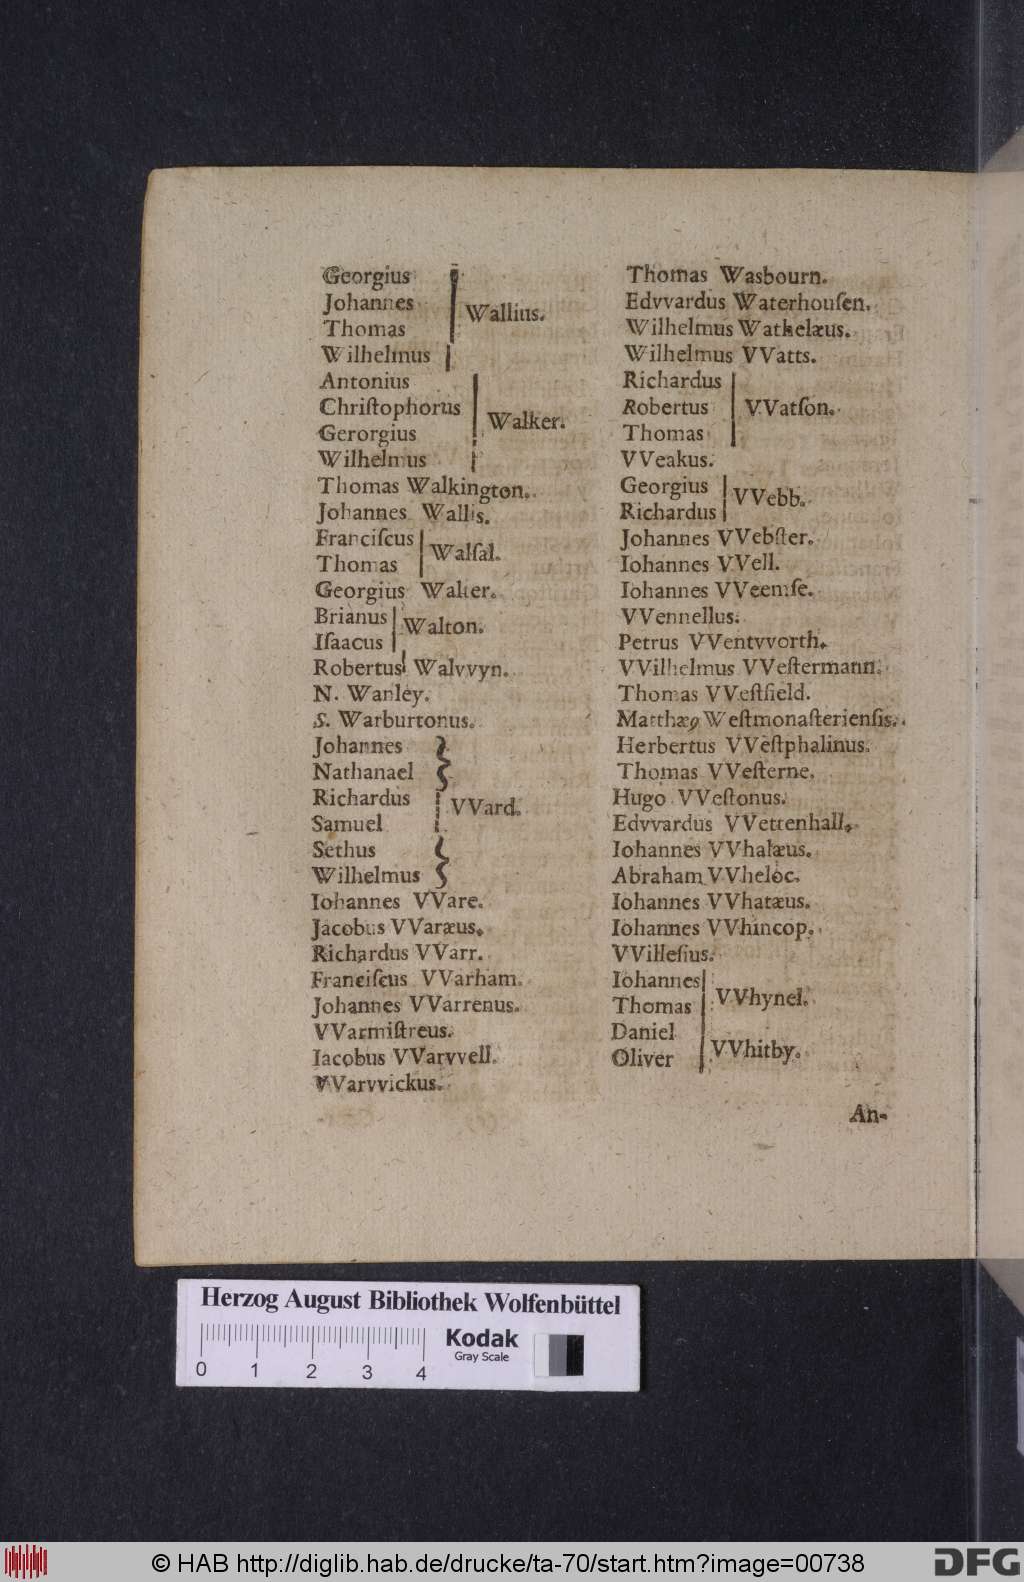 Georgius
Johannes
Thomas
Wilhelmus
Wallius.
Antonius
Chriſtophorus
Gerorgius
Wilhelmus
Walker.
Thomas Walkington.
Johannes Wallis.
Franciſcus
Thomas
Walſal.
Georgius Walter.
Brianus
Iſaacus
Walton.
Robertus Walvvyn.
N. Wanley.
S. Warburtonus.
Johannes
Nathanael
Richardus
Samuel
Sethus
Wilhelmus
VVard.
Iohannes VVare.
Jacobus VVaræus.
Richardus VVarr.
Franciſcus VVarham.
Johannes VVarrenus.
VVarmiſtreus.
Iacobus VVarvvell.
VVarvvickus.
Thomas Wasbourn.
Edvvardus Waterhouſen.
Wilhelmus Wathelæus.
Wilhelmus VVatts.
Richardus
Robertus
Thomas
VVatſon.
VVeakus.
Georgius
Richardus
VVebb.
Johannes VVebſter.
Iohannes VVell.
Iohannes VVeemſe.
VVennellus.
Petrus VVentvvorth.
VVilhelmus VVeſtermann.
Thomas VVeſtfield.
Matthæꝰ Weſtmonaſterienſis.
Herbertus VVeſtphalinus.
Thomas VVeſterne.
Hugo VVeſtonus.
Edvvardus VVettenhall.
Iohannes VVhalæus.
Abraham VVheloc.
Iohannes VVhatæus.
Iohannes VVhincop.
VVilleſius.
Iohannes
Thomas
VVhynel.
Daniel
Oliver
VVhitby.
An-
Herzog August Bibliothek Wolfenbüttel
0 1 2 3 4
Kodak
Gray Scale
© HAB http://diglib.hab.de/drucke/ta-70/start.htm?image=00738
DFG